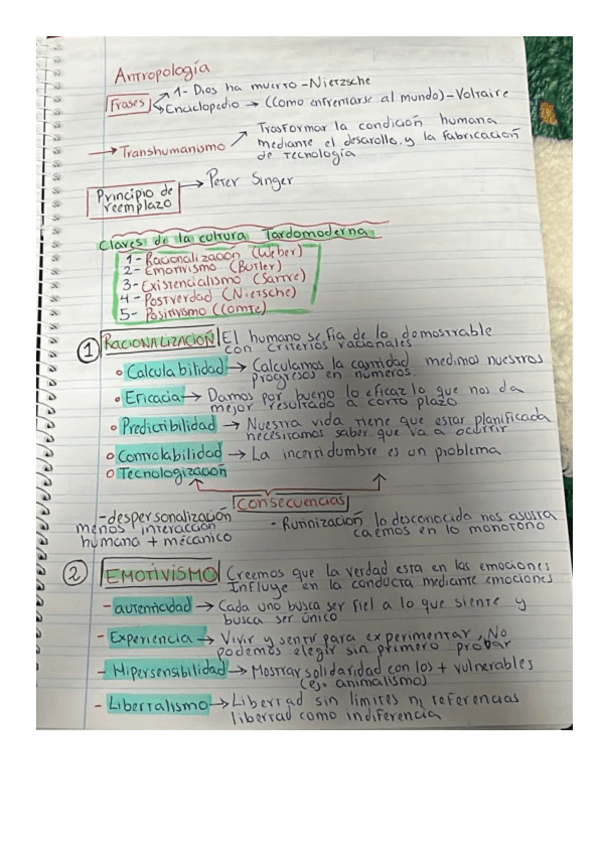 Antropología
Frases
1- Dios ha muerto - Nietzsche
Enciclopedio → (Como enfrentarse al mundo) - Voltaire
→ Transhumanismo
Trasformar la condición humana
mediante el desarollo y la fabricación
de tecnología
Principio de
reemplazo
→ Peter Singer
Claves de la cultura Tardomoderna
1- Racionalización (Weber)
2- Emotivismo (Butler)
3- Existencialismo (Sartre)
4- Postverdad (Nietsche)
5- Positivismo (Comte)
① RACIONALIZACIÓN El humano se fia de lo demostrable
con criterios racionales
Calculabilidad → Calculamos la cantidad medimos nuestros
progresos en números.
Eficacia → Damos por bueno lo eficaz lo que nos da
mejor resultado a corto plazo
Predictibilidad → Nuestra vida tiene que estar planificada
necesitamos saber que va a ocurrir
Controlabilidad → La incertidumbre es un problema
Tecnologización
CONSECUENCIAS
- despersonalización
menos interacción
humana + mécanico
- Rutinización lo desconocido nos asusta
caemos en lo monotono
② EMOTIVISMO Creemos que la verdad esta en las emociones
Influye en la conducta mediante emociones
- autenticidad → Cada uno busca ser fiel a lo que siente y
busca ser único
- Experiencia → Vivir y sentir para experimentar, No
podemos elegir sin primero probar
- Hipersensibilidad → Mostrar solidaridad con los + vulnerables
(ej. animalismo)
- Liberralismo → Libertad sin límites ni referencias
libertad como indiferencia